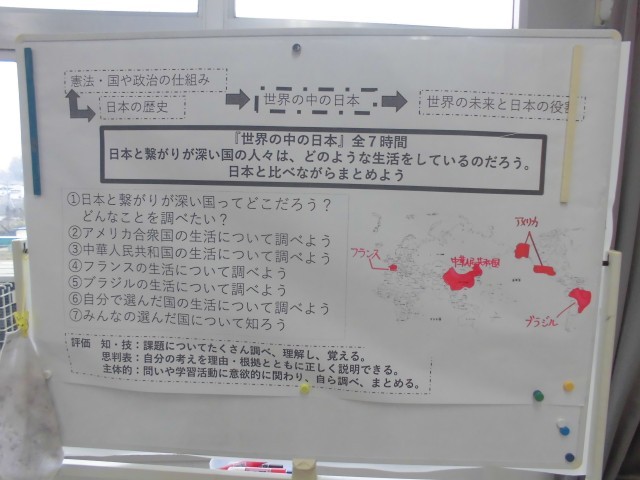 憲法・国や政治の仕組み
日本の歴史
世界の中の日本
世界の未来と日本の役割
『世界の中の日本』全７時間
日本と繋がりが深い国の人々は、どのような生活をしているのだろう。
日本と比べながらまとめよう
①日本と繋がりが深い国ってどこだろう？
どんなことを調べたい？
②アメリカ合衆国の生活について調べよう
③中華人民共和国の生活について調べよう
④フランスの生活について調べよう
⑤ブラジルの生活について調べよう
⑥自分で選んだ国の生活について調べよう
⑦みんなの選んだ国について知ろう
フランス
中華人民共和国
アメリカ
ブラジル
評価　知・技：課題についてたくさん調べ、理解し、覚える。
思判表：自分の考えを理由・根拠とともに正しく説明できる。
主体的：問いや学習活動に意欲的に関わり、自ら調べ、まとめる。